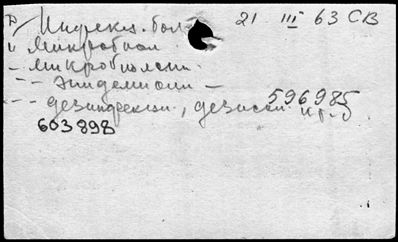 Инфекц. бол 21 III 63 СВ
" Микробиол
– микробиологи.
– – Эпидемиол –
– – дезинфекци., дезинсек. 596985
603898